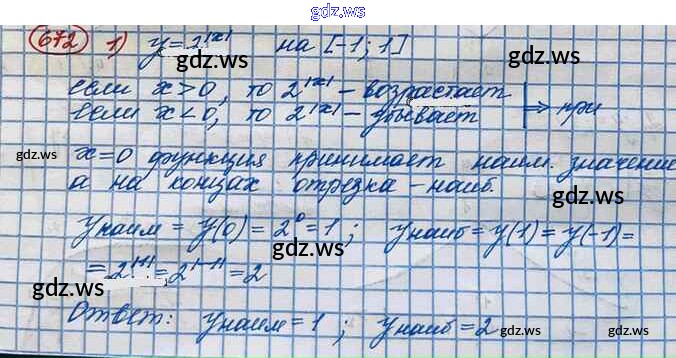 gdz.ws
672 1) y=2^|x| на [-1; 1]
gdz.ws gdz.ws
если x>0, то 2^|x| – возрастает
если x<0, то 2^|x| – убывает ⇒ при
gdz.ws
x=0 функция принимает наим. значение
а на концах отрезка – наиб.
gdz.ws gdz.ws
yнаим = y(0) = 2^0 = 1; yнаиб = y(1) = y(-1) =
gdz.ws
= 2^|1| = 2^|-1| = 2
gdz.ws gdz.ws
Ответ: yнаим = 1; yнаиб = 2
gdz.ws gdz.ws
gdz.ws